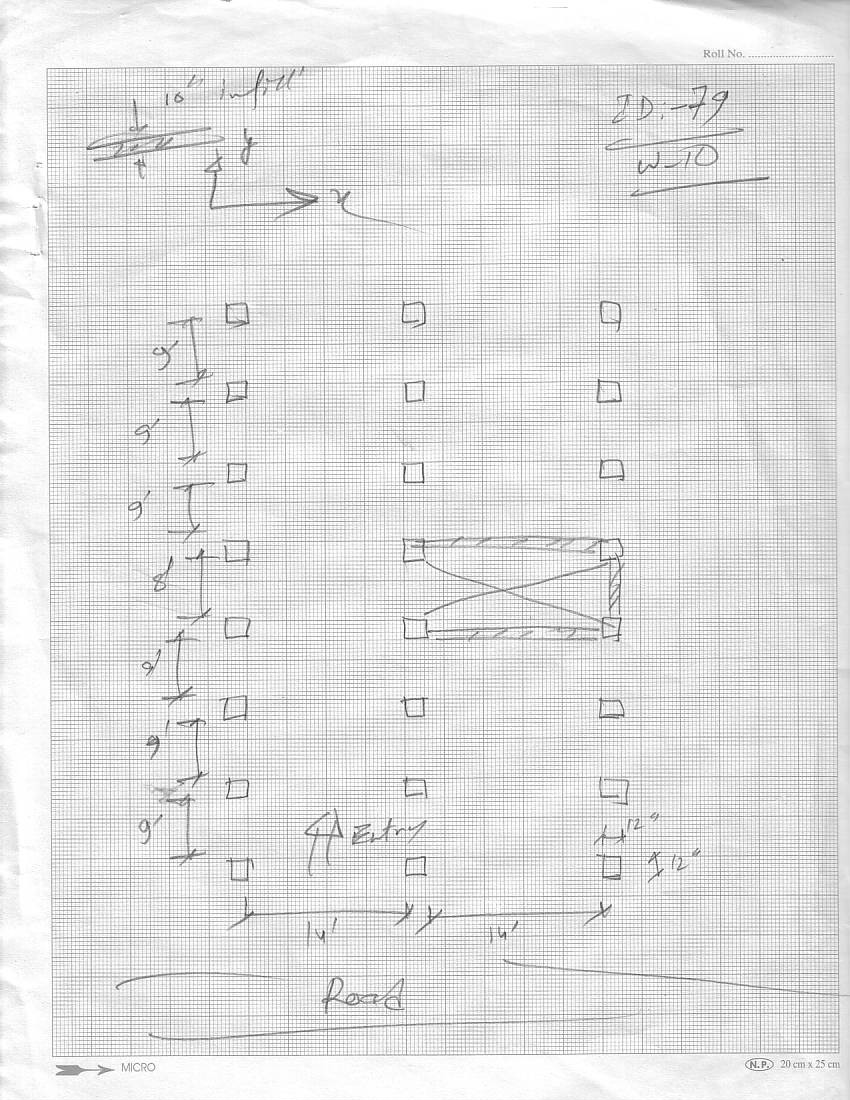 Roll No.
10" infill
ID:-79
W-10
y
x
9'
9'
9'
8'
9'
9'
9'
Entry
12"
12"
14'
14'
Road
MICRO
N.P. 20 cm x 25 cm